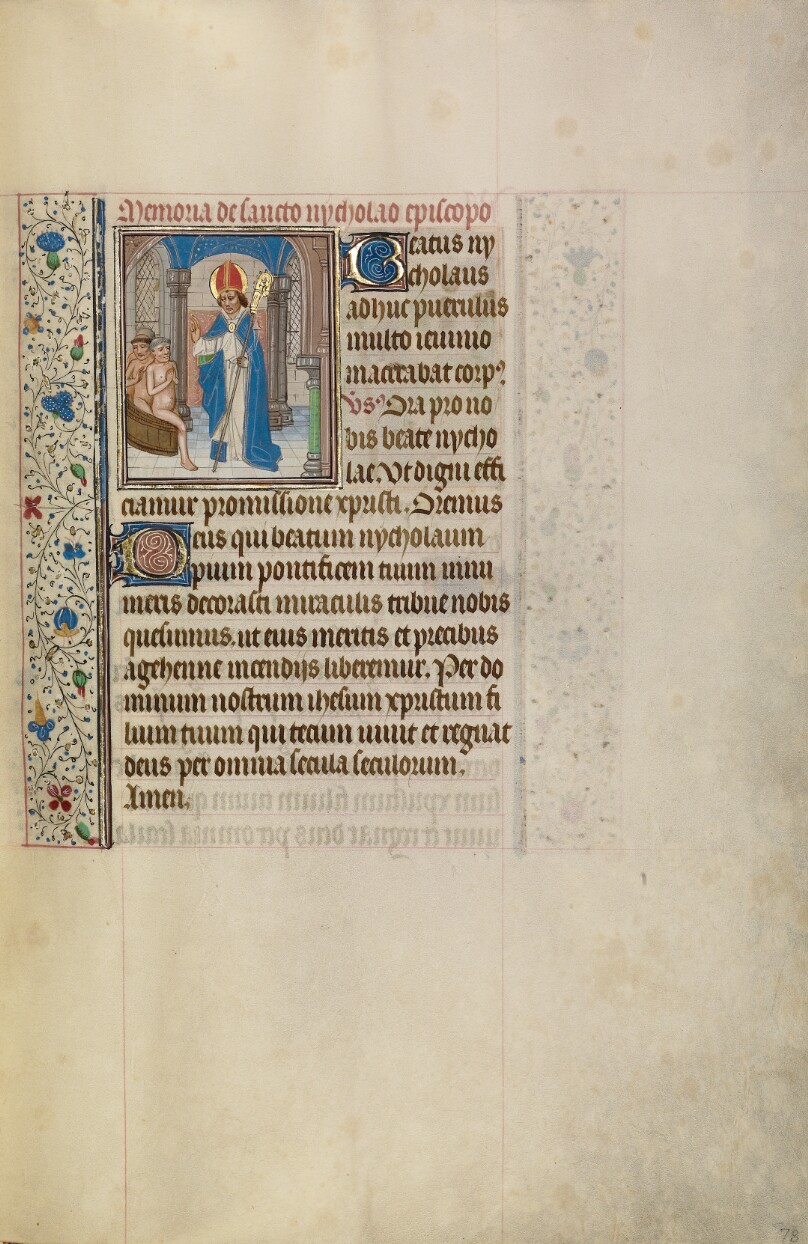 Memoria de sancto nycholao episcopo
Beatus ny
cholaus
adhuc puerulus
multo ieiunio
macerabat corpꝰ.
Vs. Ora pro no
bis beate nycho
lae. Vt digni effi
ciamur promissione xpristi. Oremus
Deus qui beatum nycholaum
pium pontificem tuum innu
meris decorasti miraculis tribue nobis
quesumus. ut eius meritis et precibus
agehenne incendijs liberemur. Per do
minum nostrum ihesum xpristum fi
lium tuum qui tecum uiuit et regnat
deus per omnia secula seculorum.
Amen.
78